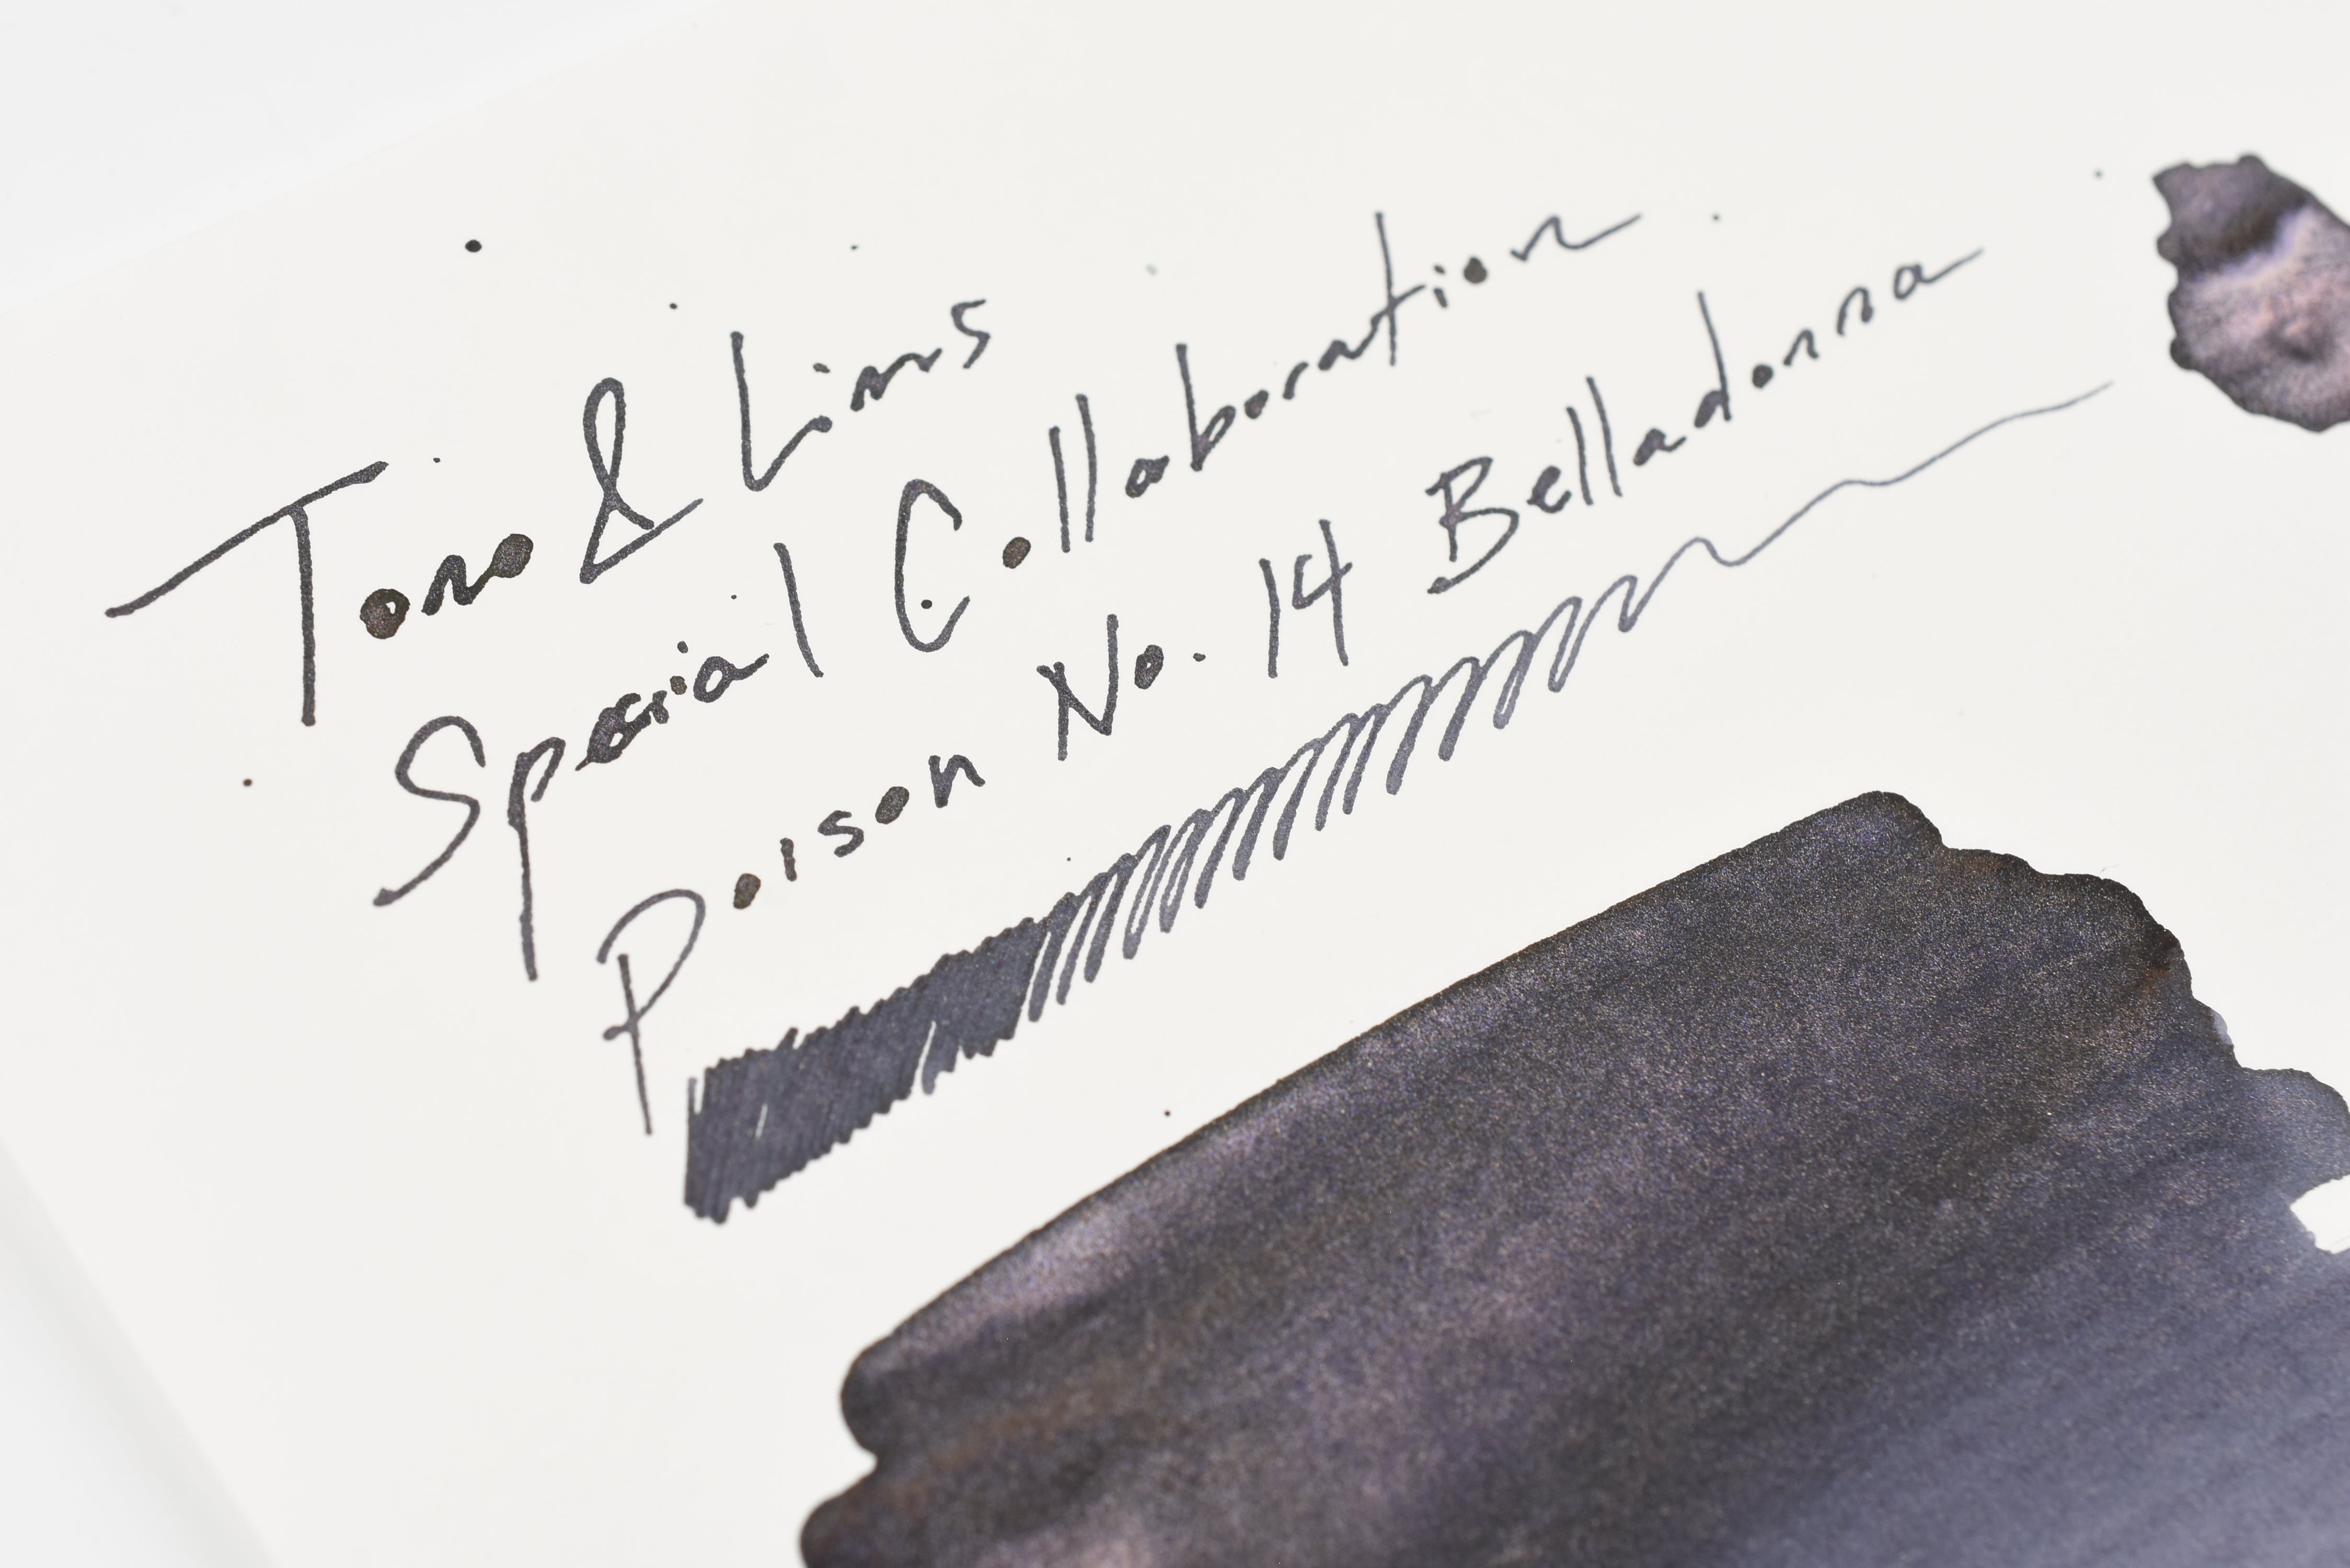 Tono & Lims
Special Collaboration
Poison No. 14 Belladonna